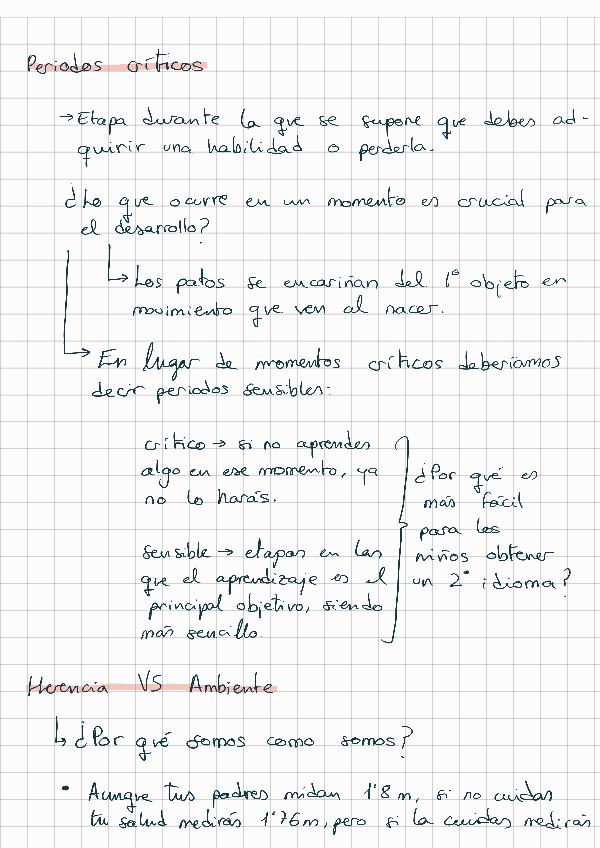 Periodos críticos
→ Etapa durante la que se supone que debes ad-
quirir una habilidad o perderla.
¿Lo que ocurre en un momento es crucial para
el desarrollo?
↳ Los patos se encariñan del 1º objeto en
movimiento que ven al nacer.
→ En lugar de momentos críticos deberíamos
decir periodos sensibles:
crítico → si no aprendes
algo en ese momento, ya
no lo harás.
sensible → etapas en las
que el aprendizaje es el
principal objetivo, siendo
más sencillo.
¿Por qué es
más fácil
para los
niños obtener
un 2º idioma?
Herencia VS Ambiente
↳ ¿Por qué somos como somos?
• Aunque tus padres midan 1'8 m, si no cuidas
tu salud medirás 1'76 m, pero si la cuidas medirás